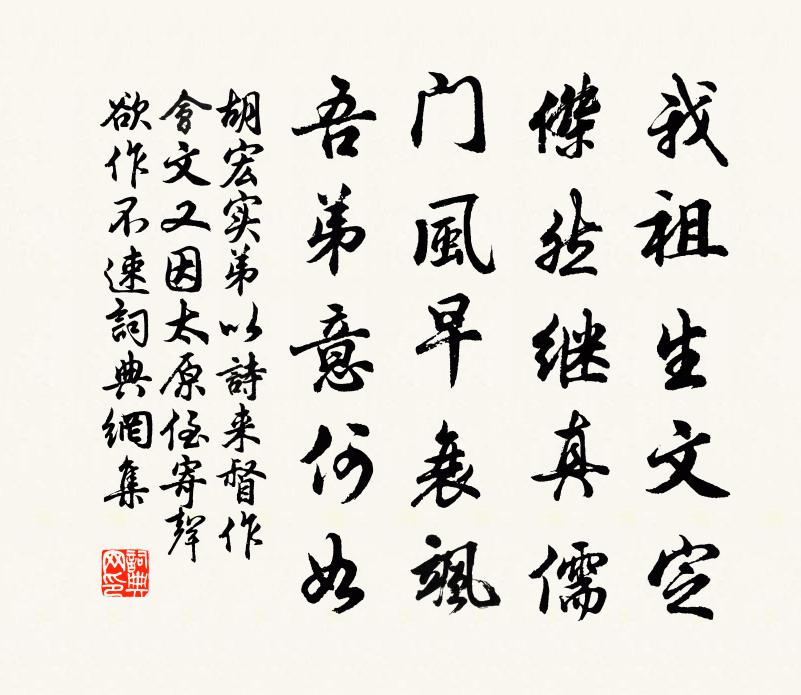 我祖生文定
傑然继真儒
门風早衰颯
吾弟意何如
胡宏实弟以詩来督作
會文又因太原侄寄聲
欲作不速詞典網集
詞典网印